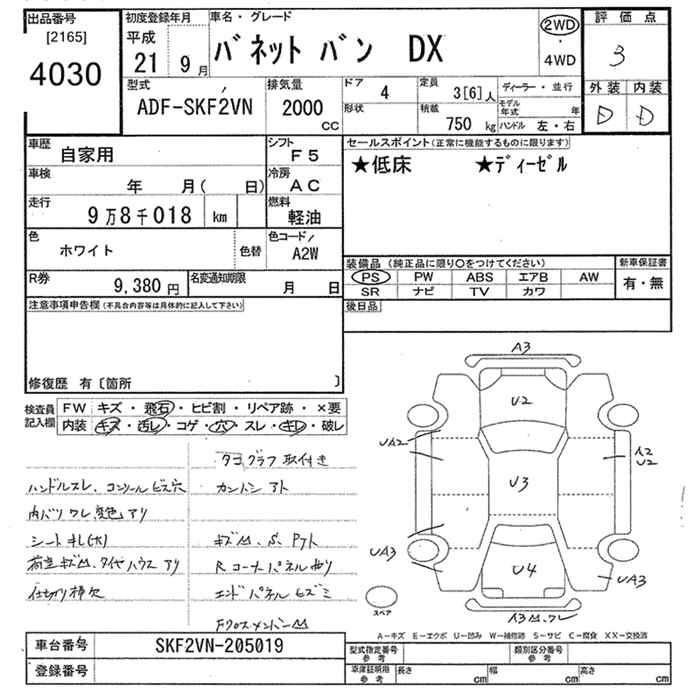 出品番号
[2165]
4030
初度登録年月
平成
21 9月
車名・グレード
バネット バン DX
2WD
・
4WD
評価点
3
型式
ADF-SKF2VN
排気量
2000
cc
ドア
4
形状
定員
3[6]人
積載
750 kg
ディーラー・並行
モデル年式 年
ハンドル 左・右
外装 内装
D D
車歴
自家用
シフト
F5
車検
年 月( 日)
冷房
AC
走行
9万8千018 km
燃料
軽油
色
ホワイト
色替
色コード/
A2W
R券
9,380円
名変通知期限
月 日
セールスポイント(正常に機能するものに限ります)
★低床 ★ディーゼル
装備品(純正品に限り○をつけてください)
PS PW ABS エアB AW
SR ナビ TV カワ
新車保証書
有・無
後日品
注意事項申告欄(不具合内容等は具体的に記入して下さい)
修復歴 有〔箇所 〕
検査員
記入欄
FW キズ・飛石・ヒビ割・リペア跡・×要
内装 キズ・汚レ・コゲ・穴・スレ・キレ・破レ
タコグラフ取付き
ハンドルスレ、コンソールビス穴
カンバン アト
内バリ ワレ 変色アリ
シート キレ(大)
荷室キズ凹、タイヤハウス アリ
R コーナーパネル曲り
仕切り棒欠
エンドパネルヒズミ
Fクロスメンバー凹
A3
U2
UA2
A2
U2
U3
UA3
U4
UA3
スペア
A-キズ E-エクボ U-凹み W-補修跡 S-サビ C-腐食 XX-交換済
車台番号
SKF2VN-205019
登録番号
型式指定番号
参考
類別区分番号
参考
車庫証明用
参考
長さ cm
幅 cm
高さ cm